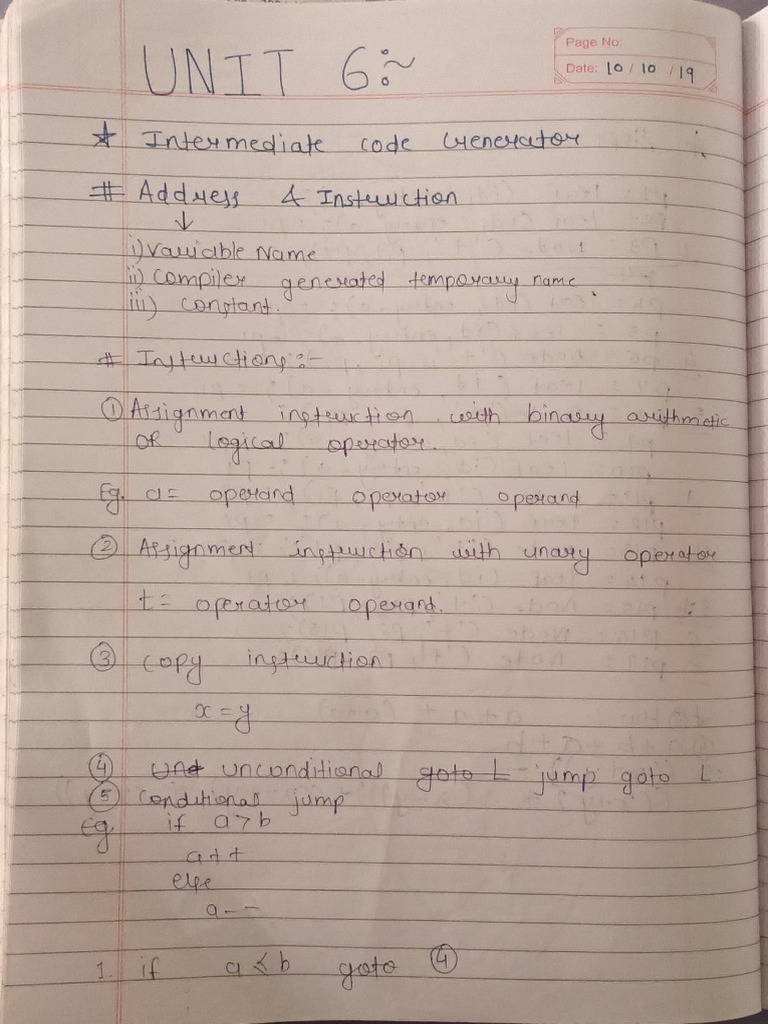 Page No:
Date: 10 / 10 / 19
UNIT 6:~
★ Intermediate code Generator
# Address & Instruction
↓
i) Variable Name
ii) Compiler generated temporary name
iii) Constant.
# Instructions :-
① Assignment instruction with binary arithmetic
OR logical operator.
Eg. a = operand operator operand
② Assignment instruction with unary operator
t = operator operand.
③ Copy instruction
x = y
④ unconditional goto L jump goto L
⑤ Conditional jump
Eg if a > b
a++
else
a--
1. if a < b goto ④